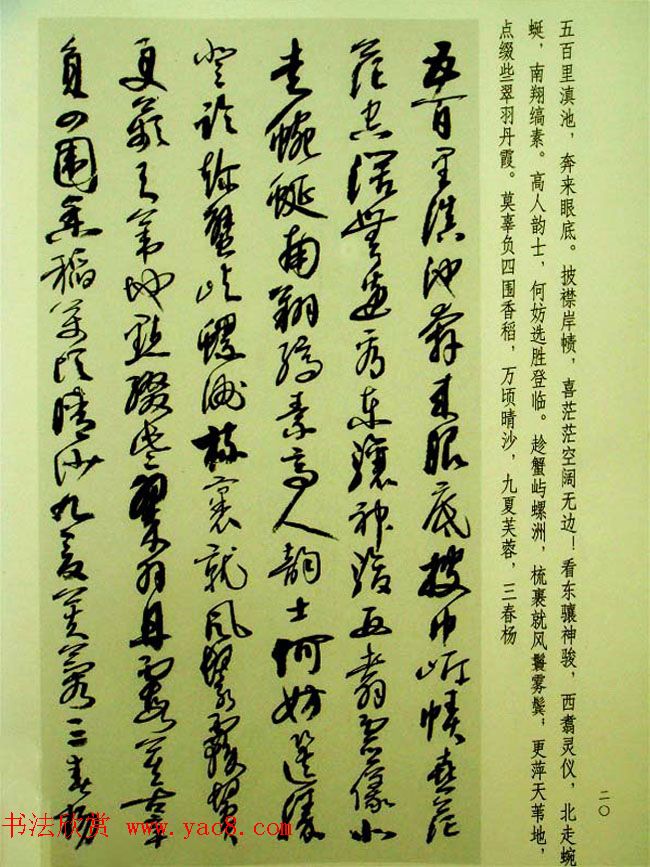 五百里滇池，奔来眼底。披襟岸帻，喜茫茫空阔无边！看东骧神骏，西翥灵仪，北走蜿
蜒，南翔缟素。高人韵士，何妨选胜登临。趁蟹屿螺洲，梳裹就风鬟雾鬓；更萍天苇地，
点缀些翠羽丹霞。莫辜负四围香稻，万顷晴沙，九夏芙蓉，三春杨
二〇
五百里滇池奔來眼底披巾岸幘喜茫
茫空阔無邊看東驤神駿西翥靈儀北
走蜿蜒南翔縞素高人韵士何妨選勝
登臨趁蟹屿螺洲梳裹就風鬟霧鬢
更蘋天葦地點綴些翠羽丹霞莫辜
負四圍香稻萬頃晴沙九夏芙蓉三春楊
书法欣赏 www.yac8.com